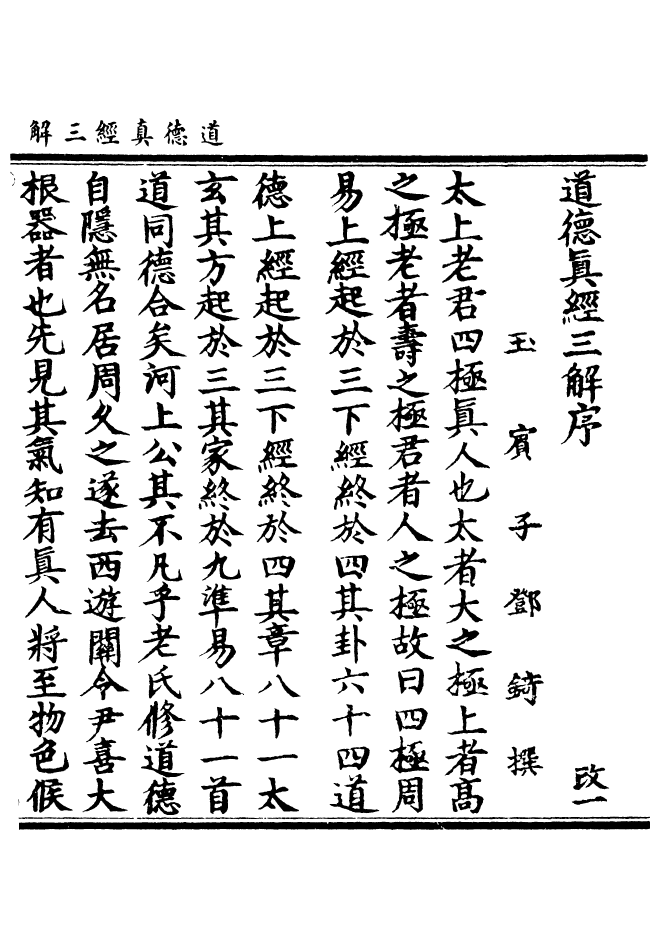 道德真經三解
道德眞經三解序　改一
玉賓子鄧錡撰
太上老君四極眞人也太者大之極上者高
之極老者壽之極君者人之極故曰四極周
易上經起於三下經終於四其卦六十四道
德上經起於三下經終於四其章八十一太
玄其方起於三其家終於九準易八十一首
道同德合矣河上公其不凡乎老氏修道德
自隱無名居周久之遂去西遊關令尹喜大
根器者也先見其氣知有眞人將至物色候